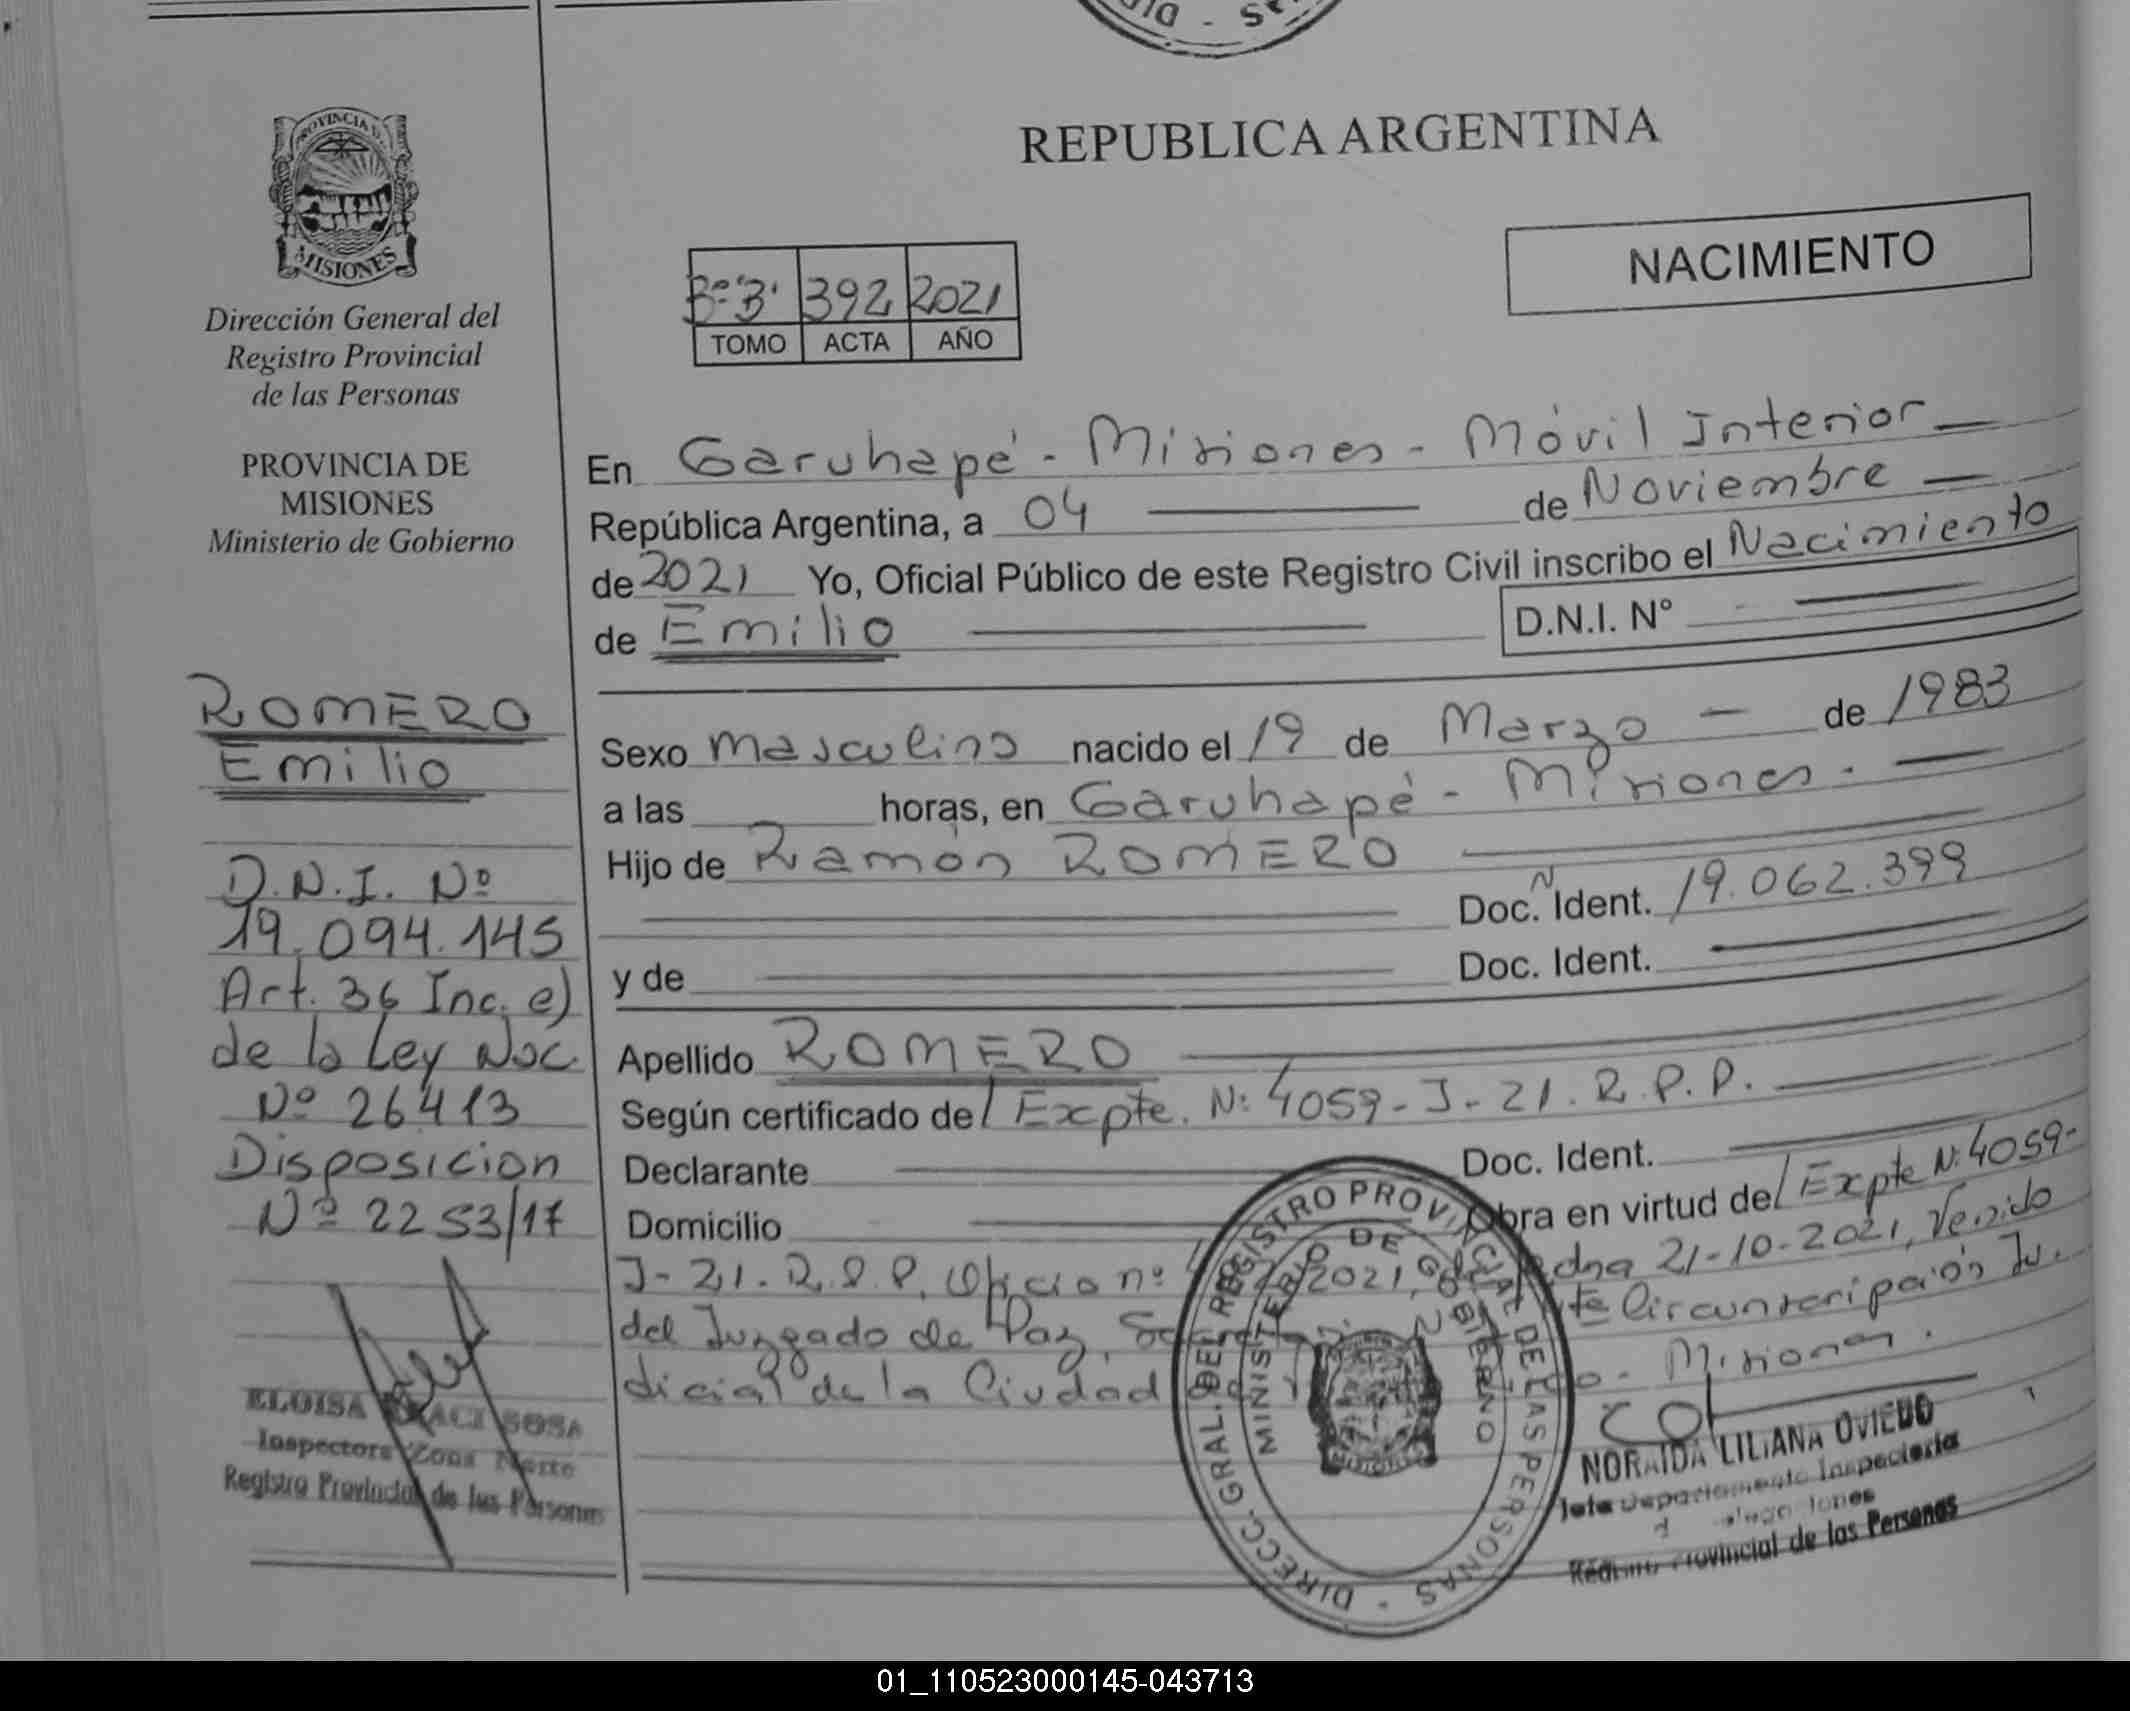 REPUBLICA ARGENTINA
NACIMIENTO
PROVINCIA DE
MISIONES
Dirección General del
Registro Provincial
de las Personas
PROVINCIA DE
MISIONES
Ministerio de Gobierno
392 2021
TOMO ACTA AÑO
ROMERO
Emilio
D.N.I. Nº
19.094.145
Art. 36 Inc. e)
de la Ley Nac.
Nº 26413
Disposicion
Nº 2253/17
ELOISA SOSA
Inspectora Zona Norte
Registro Provincial de las Personas
En Garuhapé - Misiones - Móvil Interior
República Argentina, a 04 de Noviembre
de 2021 Yo, Oficial Público de este Registro Civil inscribo el Nacimiento
de Emilio D.N.I. N°
Sexo Masculino nacido el 19 de Marzo de 1983
a las horas, en Garuhapé - Misiones.
Hijo de Ramón ROMERO
Doc. Ident. Nº 19.062.399
y de Doc. Ident.
Apellido ROMERO
Según certificado de/ Expte. N: 4059-J-21.R.P.P.
Declarante Doc. Ident.
Domicilio Obra en virtud del Expte N: 4059-
J-21.R.P.P. Oficio nº 2021, 21-10-2021, Venido
del Juzgado de Paz, Circunscripción Ju.
dicial de la Ciudad Misiones.
DIRECC. GRAL. DEL REGISTRO PROVINCIAL DE LAS PERSONAS
MINISTERIO DE GOBIERNO
NORAIDA LILIANA OVIEDO
Jefa Departamento Inspectoria
Registro Provincial de las Personas
01_110523000145-043713